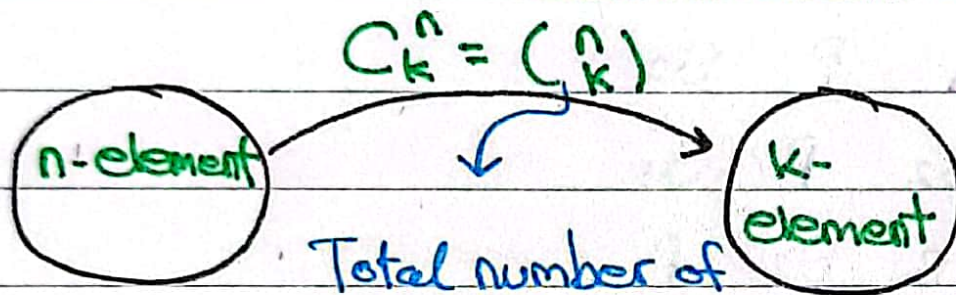 C_k^n = (n k)
n-element
k-
element
Total number of